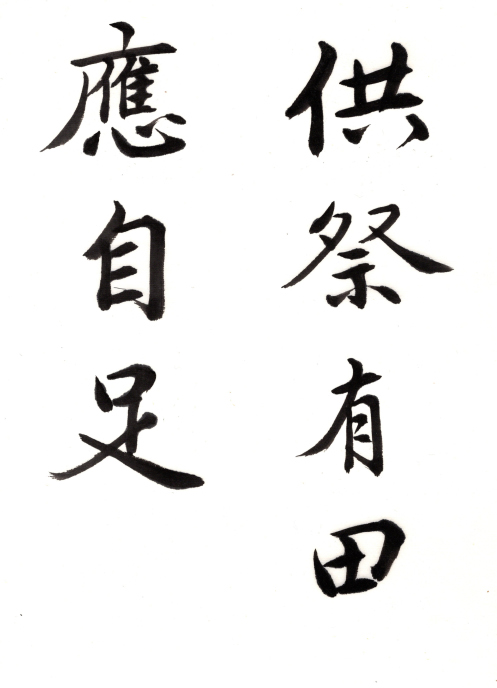 供祭有田
應自足